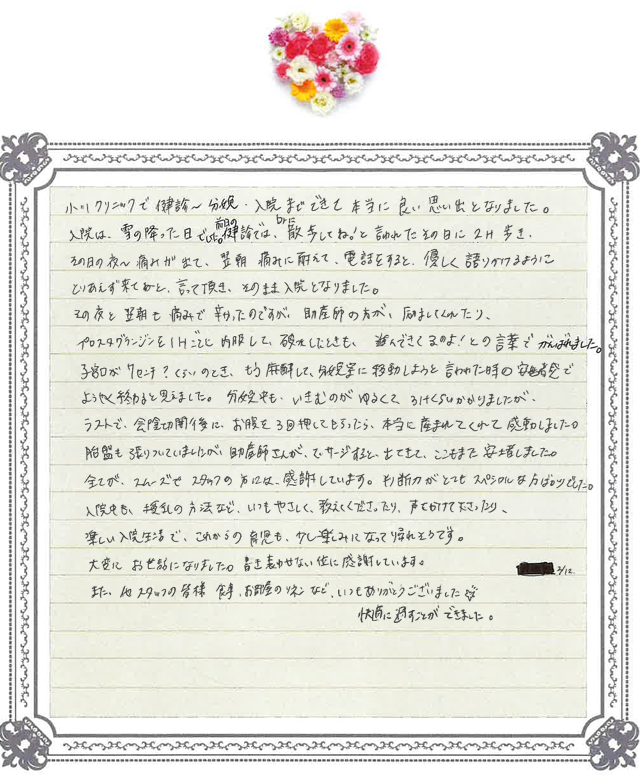 小川クリニックで健診〜分娩・入院までできて本当に良い思い出となりました。
入院は、雪の降った日でした。前日の健診では、Drに散歩してね!と言われたその日に2H歩き、
その日の夜〜痛みが出て、翌朝 痛みに耐えて、電話をすると、優しく語りかけるように
とりあえず来てねと、言て頂き、そのまま入院となりました。
その夜と翌朝も痛みで辛かったのですが、助産師の方が、励ましてくれたり、
プロスタグランジンを1Hごとに内服して、破水したときも、進んできてるのよ!との言葉でがんばれました。
子宮口が7センチ?くらいのとき、もう麻酔して、分娩室に移動しようと言われた時の安堵感で
ようやく終わると思えました。分娩中も、いきむのがゆるくて 3Hくらいかかりましたが、
ラストで、会陰切開後に、お腹を3回押してもらったら、本当に産まれてくれて感動しました。
胎盤も張りついていましたが、助産師さんが、マッサージすると、出てきて、ここもまた安堵しました。
全てが、スムーズで スタッフの方には、感謝しています。判断力がとてもスペシャルな方ばかりでした。
入院中も、授乳の方法など、いつもやさしく、教えてくださったり、声をかけて下さったり、
楽しい入院生活で、これからの育児も、少し楽しみになって帰れそうです。
大変に お世話になりました。書き表わせない位に感謝しています。
2/12
また、他スタッフの皆様 食事、お部屋のリネンなど、いつもありがとうございました
快適に過すことができました。